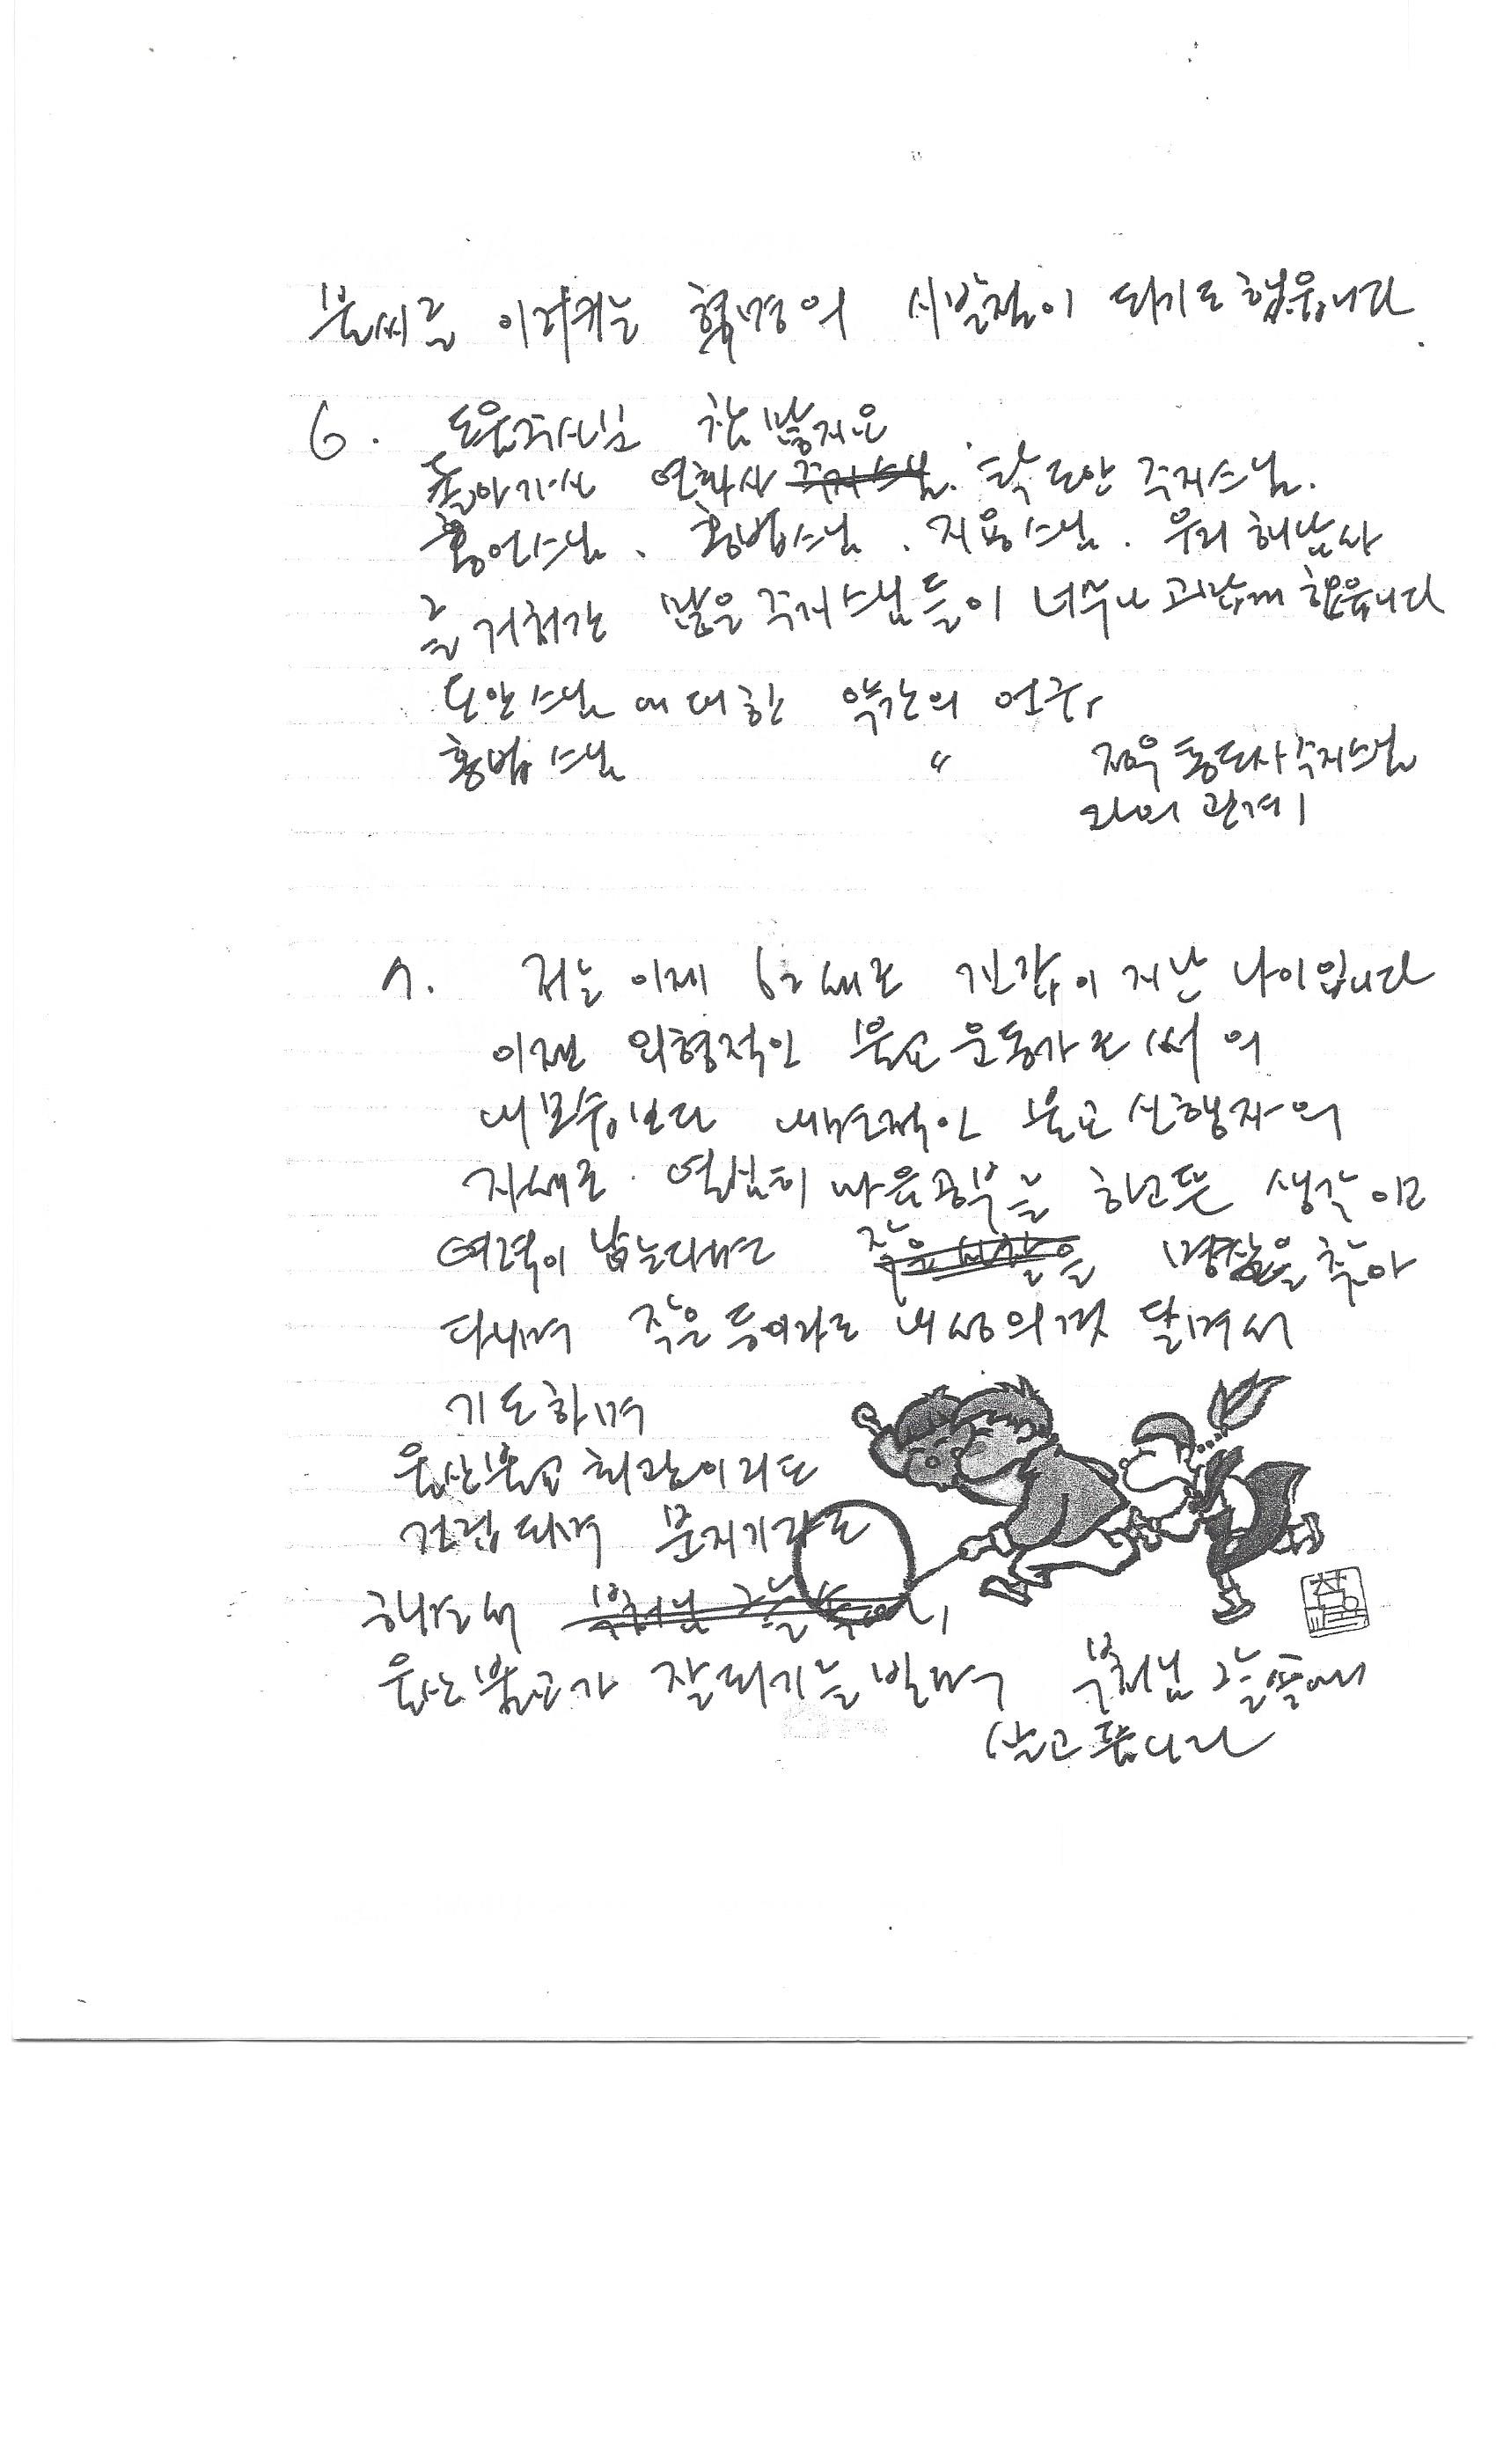 불씨를 이르키는 혁명의 시발점이 되기도 했읍니다.
6. 도움주신님 참 많지요
돌아가신 연화사 주지스님. 덕도안 주지스님.
홍연스님. 홍법스님. 지용스님. 우리 해남사
를 거쳐간 많은 주지스님들이 너무나 고맙게 했읍니다
도안스님에 대한 약간의 언급
홍법스님 〃 지욱 통도사 주지스님
과의 관계
7. 저는 이제 62세로 진갑이 지난 나이입니다
이젠 외형적인 불교 운동가로써의
내모습보다 내면적인 불교 신행자의
자세로 열심히 마음공부를 하고픈 생각이고
여력이 남는다면 작은 사찰을 명찰을 찾아
다니며 작은 등이라도 내 성의껏 달면서
기도하며
울산불교회관이라도
건립되면 문지기라도
해가면서 부처님 그늘
울산불교가 잘되기를 빌며 부처님 그늘속에
살고픕니다